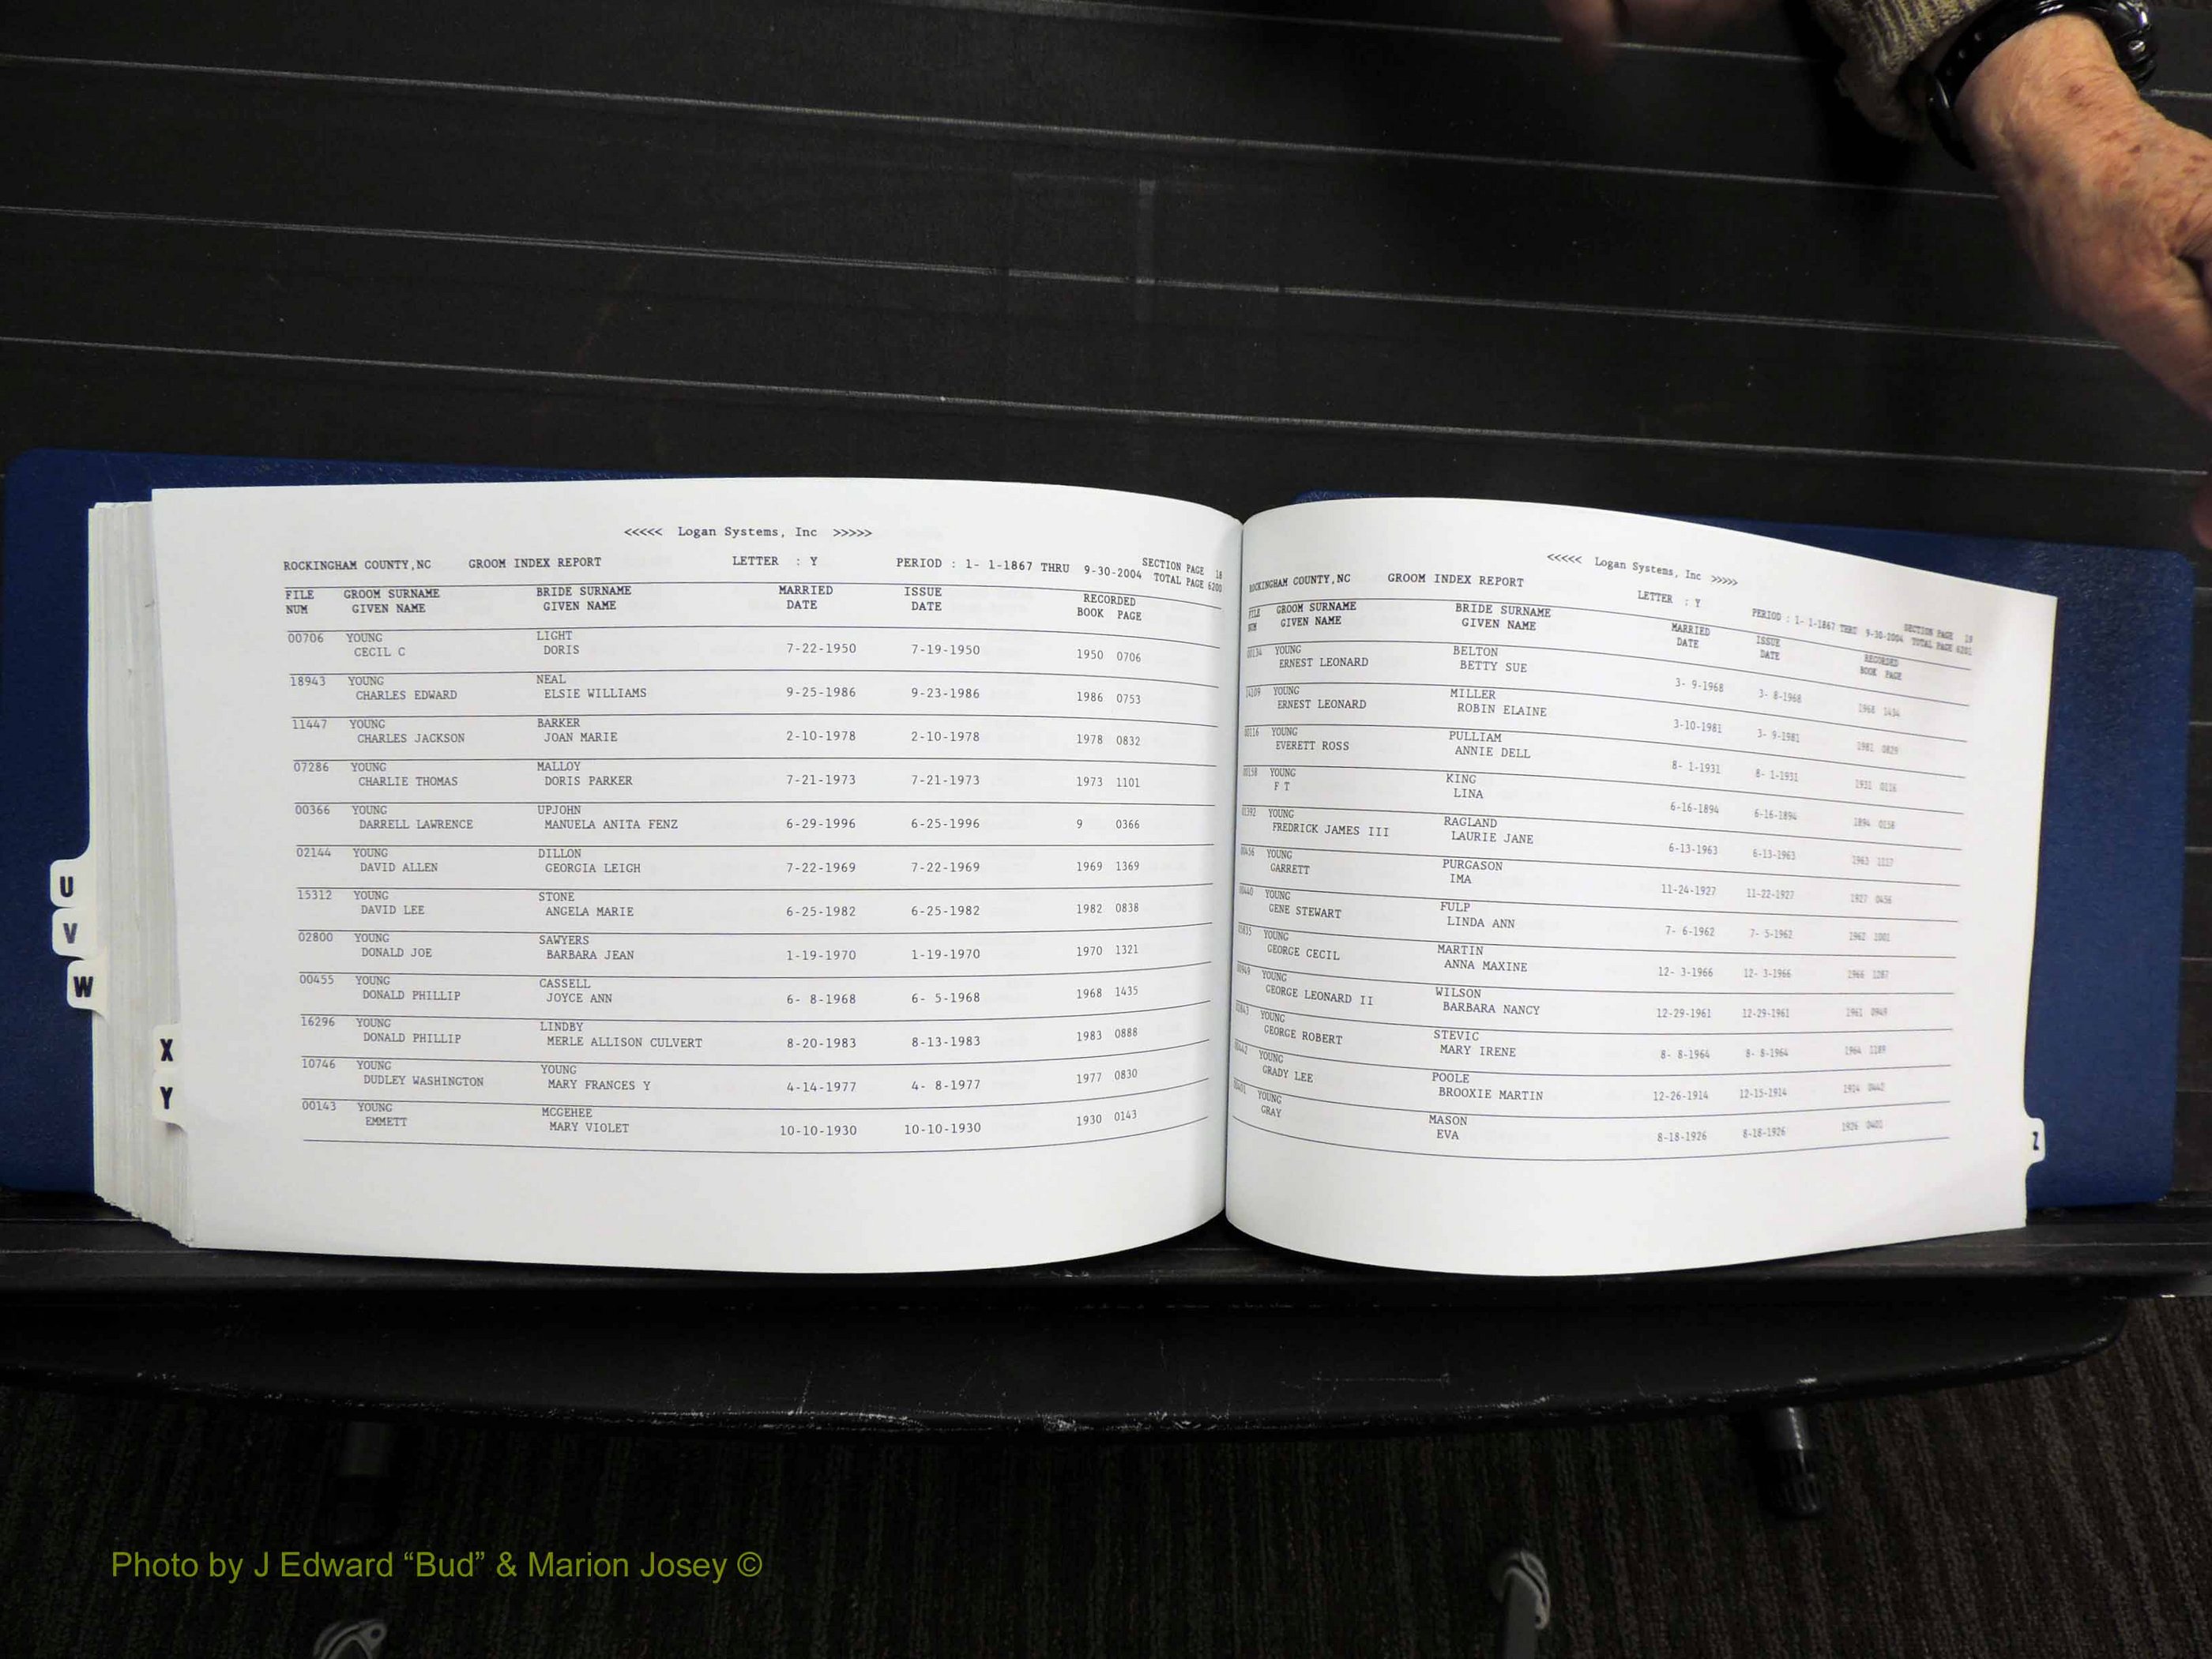 <<<<< Logan Systems, Inc >>>>>
ROCKINGHAM COUNTY,NC GROOM INDEX REPORT LETTER : Y PERIOD : 1- 1-1867 THRU 9-30-2004 SECTION PAGE 18
TOTAL PAGE 6200
FILE GROOM SURNAME BRIDE SURNAME MARRIED ISSUE RECORDED
NUM GIVEN NAME GIVEN NAME DATE DATE BOOK PAGE
00706 YOUNG LIGHT
CECIL C DORIS 7-22-1950 7-19-1950 1950 0706
18943 YOUNG NEAL
CHARLES EDWARD ELSIE WILLIAMS 9-25-1986 9-23-1986 1986 0753
11447 YOUNG BARKER
CHARLES JACKSON JOAN MARIE 2-10-1978 2-10-1978 1978 0832
07286 YOUNG MALLOY
CHARLIE THOMAS DORIS PARKER 7-21-1973 7-21-1973 1973 1101
00366 YOUNG UPJOHN
DARRELL LAWRENCE MANUELA ANITA FENZ 6-29-1996 6-25-1996 9 0366
02144 YOUNG DILLON
DAVID ALLEN GEORGIA LEIGH 7-22-1969 7-22-1969 1969 1369
15312 YOUNG STONE
DAVID LEE ANGELA MARIE 6-25-1982 6-25-1982 1982 0838
02800 YOUNG SAWYERS
DONALD JOE BARBARA JEAN 1-19-1970 1-19-1970 1970 1321
00455 YOUNG CASSELL
DONALD PHILLIP JOYCE ANN 6- 8-1968 6- 5-1968 1968 1435
16296 YOUNG LINDBY
DONALD PHILLIP MERLE ALLISON CULVERT 8-20-1983 8-13-1983 1983 0888
10746 YOUNG YOUNG
DUDLEY WASHINGTON MARY FRANCES Y 4-14-1977 4- 8-1977 1977 0830
00143 YOUNG MCGEHEE
EMMETT MARY VIOLET 10-10-1930 10-10-1930 1930 0143
<<<<< Logan Systems, Inc >>>>>
ROCKINGHAM COUNTY,NC GROOM INDEX REPORT LETTER : Y PERIOD : 1- 1-1867 THRU 9-30-2004 SECTION PAGE 19
TOTAL PAGE 6201
FILE GROOM SURNAME BRIDE SURNAME MARRIED ISSUE RECORDED
NUM GIVEN NAME GIVEN NAME DATE DATE BOOK PAGE
YOUNG BELTON
ERNEST LEONARD BETTY SUE 3- 9-1968 3- 8-1968 1968 1434
YOUNG MILLER
ERNEST LEONARD ROBIN ELAINE 3-10-1981 3- 9-1981 1981 0829
YOUNG PULLIAM
EVERETT ROSS ANNIE DELL 8- 1-1931 8- 1-1931 1931 0116
YOUNG KING
F T LINA 6-16-1894 6-16-1894 1894 0158
YOUNG RAGLAND
FREDRICK JAMES III LAURIE JANE 6-13-1963 6-13-1963 1963
YOUNG PURGASON
GARRETT IMA 11-24-1927 11-22-1927 1927 0456
YOUNG FULP
GENE STEWART LINDA ANN 7- 6-1962 7- 5-1962 1962
YOUNG MARTIN
GEORGE CECIL ANNA MAXINE 12- 3-1966 12- 3-1966 1966
YOUNG WILSON
GEORGE LEONARD II BARBARA NANCY 12-29-1961 12-29-1961 1961 0949
YOUNG STEVIC
GEORGE ROBERT MARY IRENE 8- 8-1964 8- 8-1964 1964
YOUNG POOLE
GRADY LEE BROOXIE MARTIN 12-26-1914 12-15-1914 1914 0442
YOUNG MASON
GRAY EVA 8-18-1926 8-18-1926 1926 0401
U
V
W
X
Y
Z
Photo by J Edward “Bud” & Marion Josey ©